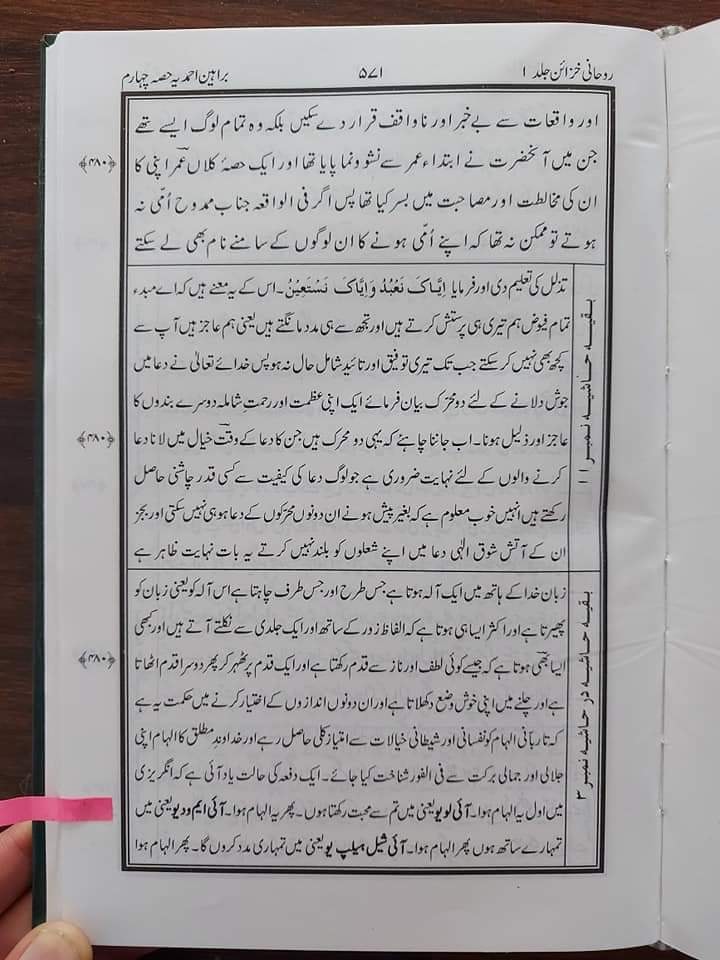 روحانی خزائن جلد ۱
۵۷۱
براہین احمدیہ حصہ چہارم
اور واقعات سے بے خبر اور ناواقف قرار دے سکیں بلکہ وہ تمام لوگ ایسے تھے
جن میں آنحضرت نے ابتداء عمر سے نشوونما پایا تھا اور ایک حصۂ کلاں عمر اپنی کا
﴿۴۸۰﴾
ان کی مخالطت اور مصاحبت میں بسر کیا تھا پس اگر فی الواقعہ جناب ممدوح اُمّی نہ
ہوتے تو ممکن نہ تھا کہ اپنے اُمّی ہونے کا ان لوگوں کے سامنے نام بھی لے سکتے
بقیہ حاشیہ نمبر ۱۱
تذلل کی تعلیم دی اور فرمایا اِیَّاکَ نَعْبُدُ وَاِیَّاکَ نَسْتَعِیْنُ۔ اس کے یہ معنے ہیں کہ اے مبدء
تمام فیوض ہم تیری ہی پرستش کرتے ہیں اور تجھ سے ہی مدد مانگتے ہیں یعنی ہم عاجز ہیں آپ سے
کچھ بھی نہیں کر سکتے جب تک تیری توفیق اور تائید شامل حال نہ ہو پس خدائے تعالیٰ نے دعا میں
جوش دلانے کے لئے دو محرک بیان فرمائے ایک اپنی عظمت اور رحمتِ شاملہ دوسرے بندوں کا
عاجز اور ذلیل ہونا۔ اب جاننا چاہئے کہ یہی دو محرک ہیں جن کا دعا کے وقت خیال میں لانا دعا
﴿۴۸۰﴾
کرنے والوں کے لئے نہایت ضروری ہے جو لوگ دعا کی کیفیت سے کسی قدر چاشنی حاصل
رکھتے ہیں انہیں خوب معلوم ہے کہ بغیر پیش ہونے ان دونوں محرکوں کے دعا ہو ہی نہیں سکتی اور بجز
ان کے آتش شوق الٰہی دعا میں اپنے شعلوں کو بلند نہیں کرتے یہ بات نہایت ظاہر ہے
بقیہ حاشیہ در حاشیہ نمبر ۳
زبان خدا کے ہاتھ میں ایک آلہ ہوتا ہے جس طرح اور جس طرف چاہتا ہے اس آلہ کو یعنی زبان کو
پھیرتا ہے اور اکثر ایسا ہی ہوتا ہے کہ الفاظ زور کے ساتھ اور ایک جلدی سے نکلتے آتے ہیں اور کبھی
ایسا بھی ہوتا ہے کہ جیسے کوئی لطف اور ناز سے قدم رکھتا ہے اور ایک قدم پر ٹھہر کر پھر دوسرا قدم اٹھاتا
﴿۴۸۰﴾
ہے اور چلنے میں اپنی خوش وضع دکھلاتا ہے اور ان دونوں اندازوں کے اختیار کرنے میں حکمت یہ ہے
کہ تا ربانی الہام کو نفسانی اور شیطانی خیالات سے امتیاز کلی حاصل رہے اور خداوند مطلق کا الہام اپنی
جلالی اور جمالی برکت سے فی الفور شناخت کیا جائے۔ ایک دفعہ کی حالت یاد آئی ہے کہ انگریزی
میں اول یہ الہام ہوا۔ آئی لو یو یعنی میں تم سے محبت رکھتا ہوں۔ پھر یہ الہام ہوا۔ آئی ایم ود یو یعنی میں
تمہارے ساتھ ہوں پھر الہام ہوا۔ آئی شیل ہیلپ یو یعنی میں تمہاری مدد کروں گا۔ پھر الہام ہوا